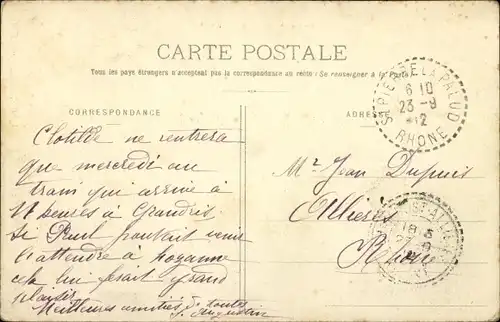 CARTE POSTALE
Tous les pays étrangers n'acceptent pas la correspondance au recto (Se renseigner à la Poste)
CORRESPONDANCE
ADRESSE
ST PIERRE LA PALUD
6 10
23-9
12
RHONE
Clotilde ne rentrera
que mercredi au
train qui arrive à
heures à Grandris
Si Paul pouvait venir
l'attendre à
cela lui ferait grand
plaisir
Meilleures amitiés de toutes
Mr Jean Dupuis
Allières
Rhône
18